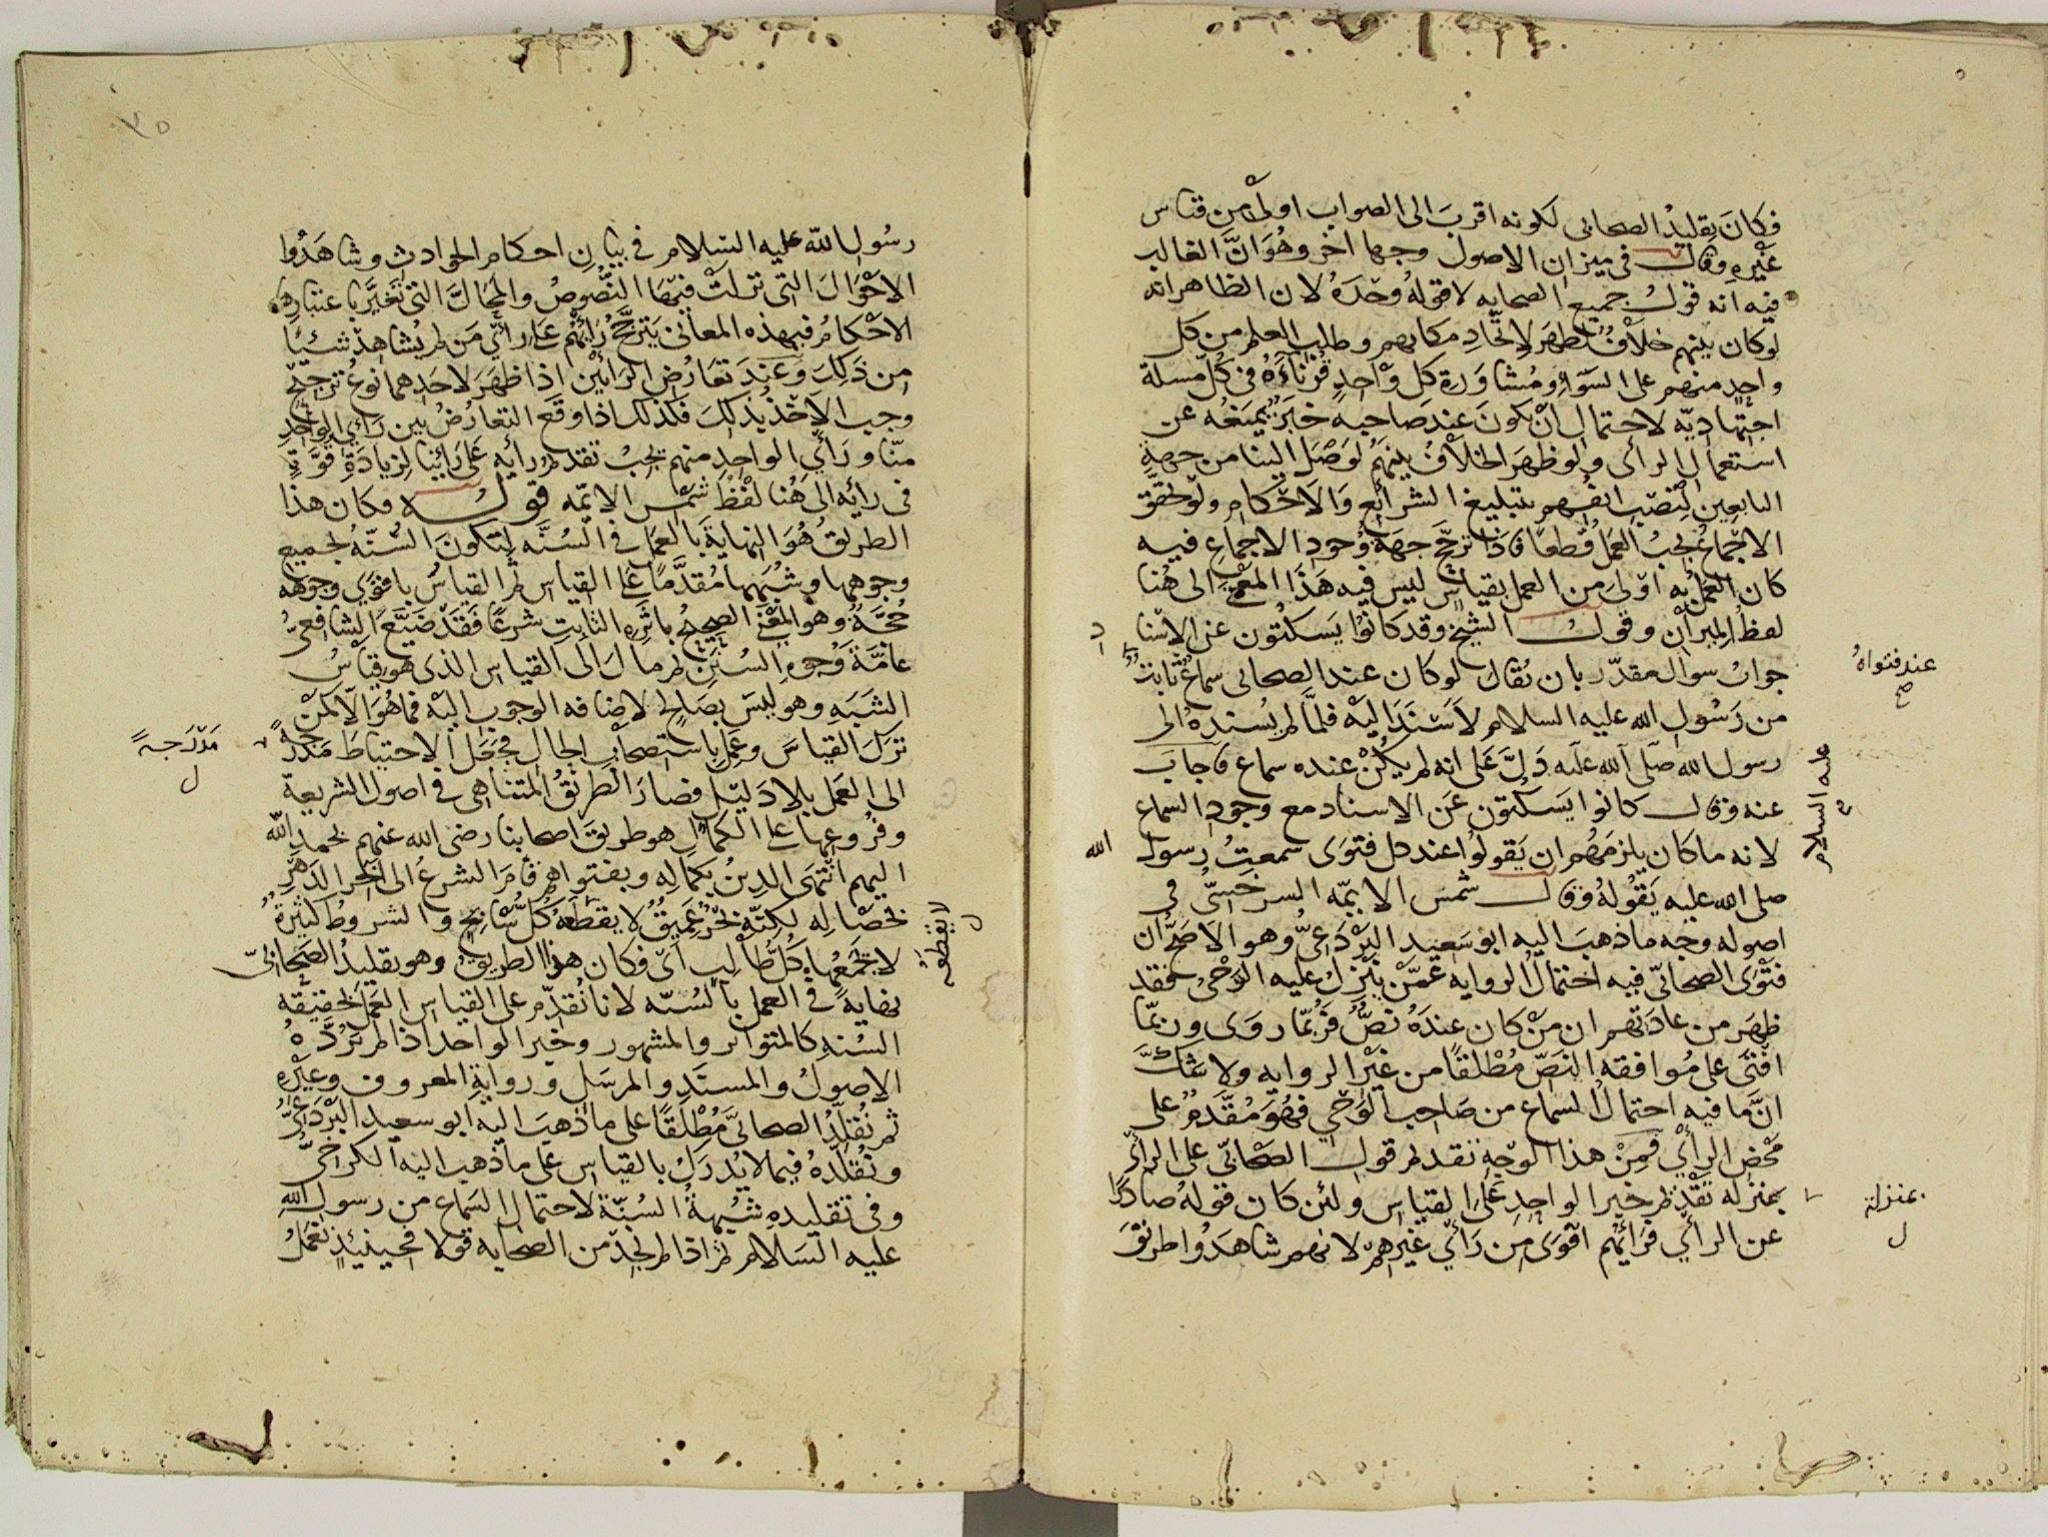 فكانَ تقليدُ الصحابى لكونه اقربَ الى الصواب اولى من قياس
غيْرِه وقال فى ميزان الاصول وجها اخر وهُوَ انَّ الغالب
فيه انه قولُ جميع الصحابه لا قولهُ وحْدَهُ لان الظاهر انه
لو كان بينهم خلافٌ لظهَر لاتّحادِ مكانهم وطلب العلم من كل
واحدٍ منهم على السّوَاءِ ومُشاوَرة كل واحدٍ قُرَناءَهُ فى كُلّ مسلة
اجتهاديّه لاحتمال انْ يكونَ عند صاحبه خبَرٌ يَمنَعُه عن
استعمال الرائى ولو ظهَر الخلافُ بينهُم لوَصَل الينا من جهةِ
التابعين لِنَصْبِ انفُسهم بتبليغ الشرائع وَالاحْكام ولو تحقّق
الاجْماعُ يجبُ العَملُ قطعًا فاذَا ترجَّح جهَة وُجودِ الاجماع فيه
كان العَملُ به اوْلى من العمل بقياسٍ ليس فيه هَذَا المعْنى الى هُنا
لفظُ الميزان وقولُ الشيخ وقد كانوُا يَسكتُون عن الاسْناد
جوابُ سوال مقدّر بان يُقالَ لو كان عند الصحابى سماعٌ ثابتٌ
من رَسُولِ الله عليه السلام لاَسْنَدَ اليْه فلمَّا لم يُسندهُ الى
رسول الله صلّى الله عليه دَلَّ عَلى انه لم يكنْ عنده سماع فاجابَ
عنه وقال كانوا يَسكتون عَن الاسناد مع وجودِ السماع
لانه ما كان يلزمهُم ان يَقولُوا عند كل فتوَى سمعتُ رسول الله
صلى الله عليه يَقُولهُ وقال شمسُ الايمّه السرخسىُّ فى
اصوله وجه ما ذهبَ اليه ابو سَعيد البَرْدَعىُّ وهو الاصَحّ ان
فتْوَى الصحابىّ فيه احتمالُ الروايه عَمَّنْ يَنْزلُ عليه الوَحْىُ فقد
ظهَر من عادَتهم ان مَنْ كان عندَهُ نصٌّ فرُبّما روَى وربّما
افتى على مُوافقه النصّ مُطْلقًا من غيْر الروايه ولا شكَّ
انَّ ما فيه احتمالُ السماع من صَاحب الوَحْي فهُوَ مُقَدّمٌ على
مَحْض الرأي فمِنْ هذا الوَجْهِ تقديم قول الصّحابىّ على الرأي
بمنزله تقديم خبر الواحِدِ على القياس ولئن كان قولهُ صادرًا
عن الرأي فرَأيُهُم اقوَى مِن رَأي غيْرِهِمْ لانهم شاهَدُوا طرِيْقَ
عند فتواهُ
صح
عليه السلام
بمنزلة
ل
٣٥
رسُول الله عليه السّلام فى بيَانِ احكام الحوادثِ وشاهَدُوا
الاحْوَالَ التى نزلتْ فيهَا النُّصُوصُ والمحَالَّ التى تتغيَّر باعتبارها
الاحْكامُ فبهذه المعانى يَترَجَّحُ رَأيُهُم عَلى رأي مَن لم يُشاهدْ شيئًا
من ذَلِكَ وَعندَ تعَارُضِ الرَأيَيْن اذا ظهَرَ لاحَدِهما نوعُ ترجيْح
وجب الاَخْذُ بذلكَ فكذلك اذا وقع التعارُضُ بين رَأي الواحِدِ
منّا ورَأي الواحد منهم يجبُ تقديمُ رأيه عَلى رأينا لزيادَةِ قوَّةٍ
فى رايه الى هُنا لفْظ شمْس الايمّه قولُه وكان هذا
الطريقُ هُوَ النهايةَ بالعمَل فى السُنَّه لتكونَ السُّنّهُ لجميع
وجوهها وشُبَهها مُقدَّمًا عَلى القياس ثم القياسُ باقوَى وجوهه
حُجَّةً وهو المعْنى الصّحيحُ باثَره الثابتِ شرعًا فَقدْ ضَيَّعَ الشافعىُّ
عامَّةَ وُجوهِ السُنَن ثم مالَ الى القياس الذى هو قياسُ
الشبَهِ وهو ليْسَ بصَالحٍ لاضَافه الوجوبِ اليْه فما هُوَ الاّ كمَنْ
ترَكَ القياسَ وعَملَ باستصحاب الحال فجَعَل الاحتياطَ مَدْرَجةً
الى العَمَل بلا دَليْلٍ فصَارَ الطريقُ المتناهى فى اصول الشريعة
وفرُوعها على الكمَالِ هو طريقَ اصحابنا رضى الله عنهم بحمد الله
اليهم انتهَى الدِينُ بكمَاله وبفتواهم قامَ الشرعُ الى آخر الدَهْرِ
بخصَاله لكنّه بحْرٌ عَمِيقٌ لا يقطعُه كلُّ سَابحٍ والشروطُ كثيْرةٌ
لا يجْمَعُها كُلّ طَالِبٍ اىّ فكان هذا الطريقُ وهو تقليدُ الصّحابىّ
نهايةً فى العمل بالسُنّه لانا نقدّم على القياس العَمَلَ بحقيقه
السُنه كالمتواتر والمشهور وخبر الواحد اذا لم تَرُدّهُ
الاصولُ والمسنَدِ والمرسَلِ وروايةِ المعروفِ وغيْرِه
ثم نُقلّدُ الصحابىَّ مُطْلقًا على ما ذهبَ اليه ابو سعيد البَرْدَعىُّ
ونُقلّدهُ فيما لا يُدرَكُ بالقياس على ما ذهب اليه الكرخىُّ
وفى تقليدِه شُبْهةُ السُنّة لاحتمال السّماع من رسول الله
عليه السّلام ثم اذا لم نجدْ من الصحابه قولا فحينئِذٍ نعْمَلُ
مَدْرَجةً
ل
لا يقطعه
ل